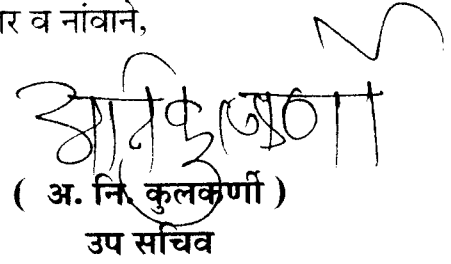 र व नांवाने,
( अ. नि. कुलकर्णी )
उप सचिव